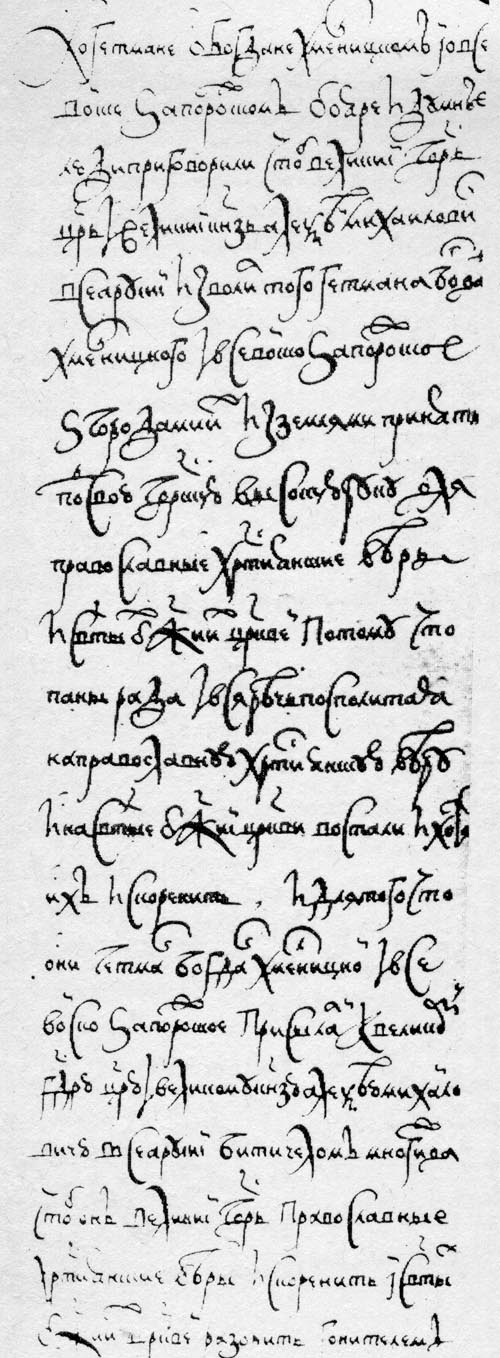 А о гетмане о богдане хмелницкомъ и о все
войске запорожскомъ бояре и думные
люди приговорили чтоб великии гсдрь
црь и великии кнзь алексѣи михаилови
всеа русиі изволил того гетмана богда
хмелницкого и все войско запорожское
з городами их и з землями принять
под свою гсдрскую высокую руку для
православные хрстиянские вѣры
и святых бжиих црквеи потому что
паны рада и вся рѣчь посполитая
на православную хрстиянскую вѣру
и на свтые бжиі цркви востали и хотят
ихъ искоренить, и для того что
они гетман богдан хмелницкой и все
войско запорожское присылали к великому
гсдрю црю и великому кнзю алексѣю михаило
вичю всеа русиі бити челомъ многижда
чтоб онъ великиі гсдрь православные
хрстиянские вѣры искоренить и свтых
бжиих црквеи разорить гонителем